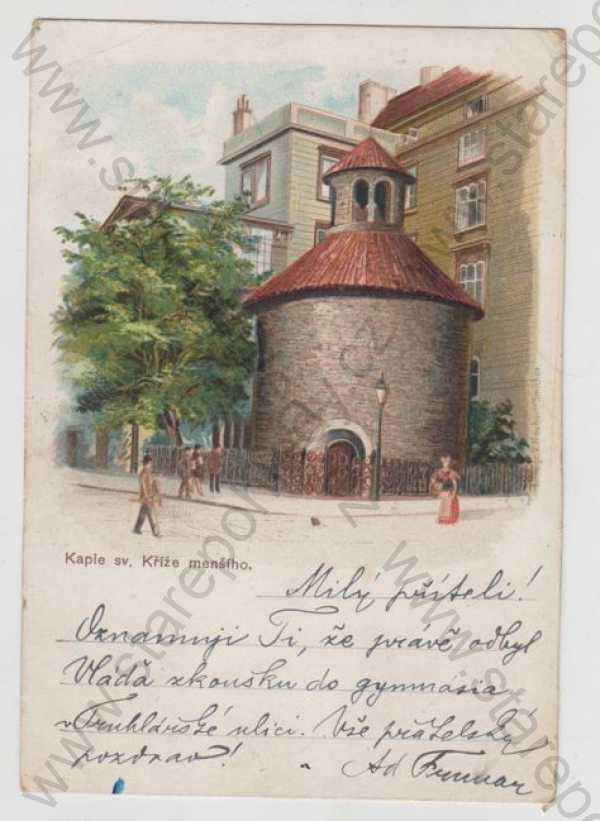 Kaple sv. Kříže menšího.
Milý příteli!
Oznamuji Ti, že právě odbyl
Vláďa zkoušku do gymnásia
v Truhlářské ulici. Vše přátelsky
pozdrav!
Ad
www.starepohlednice.cz